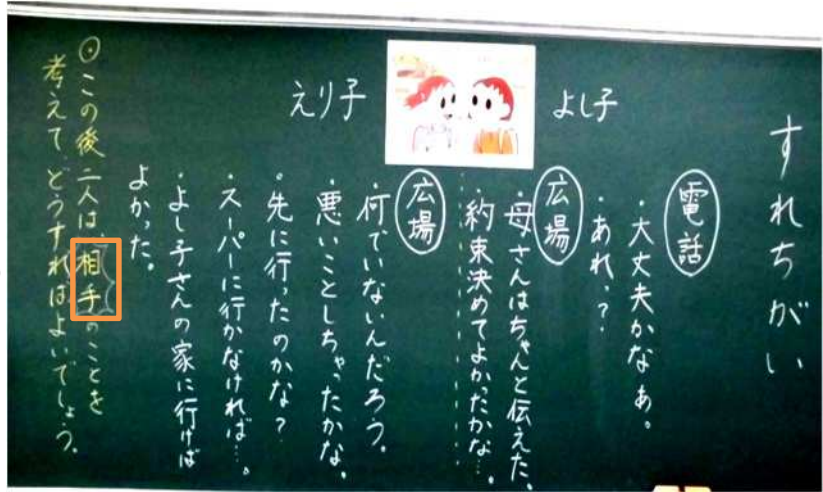 すれちがい
よし子
電話
・大丈夫かなあ。
・あれっ？
広場
・母さんはちゃんと伝えた。
・約束決めてよかったかな…。
えり子
広場
・何でいないんだろう。
・悪いことしちゃったかな。
・先に行ったのかな？
・スーパーに行かなければ…。
・よし子さんの家に行けば
よかった。
◎この後二人は、相手のことを
考えて、どうすればよいでしょう。